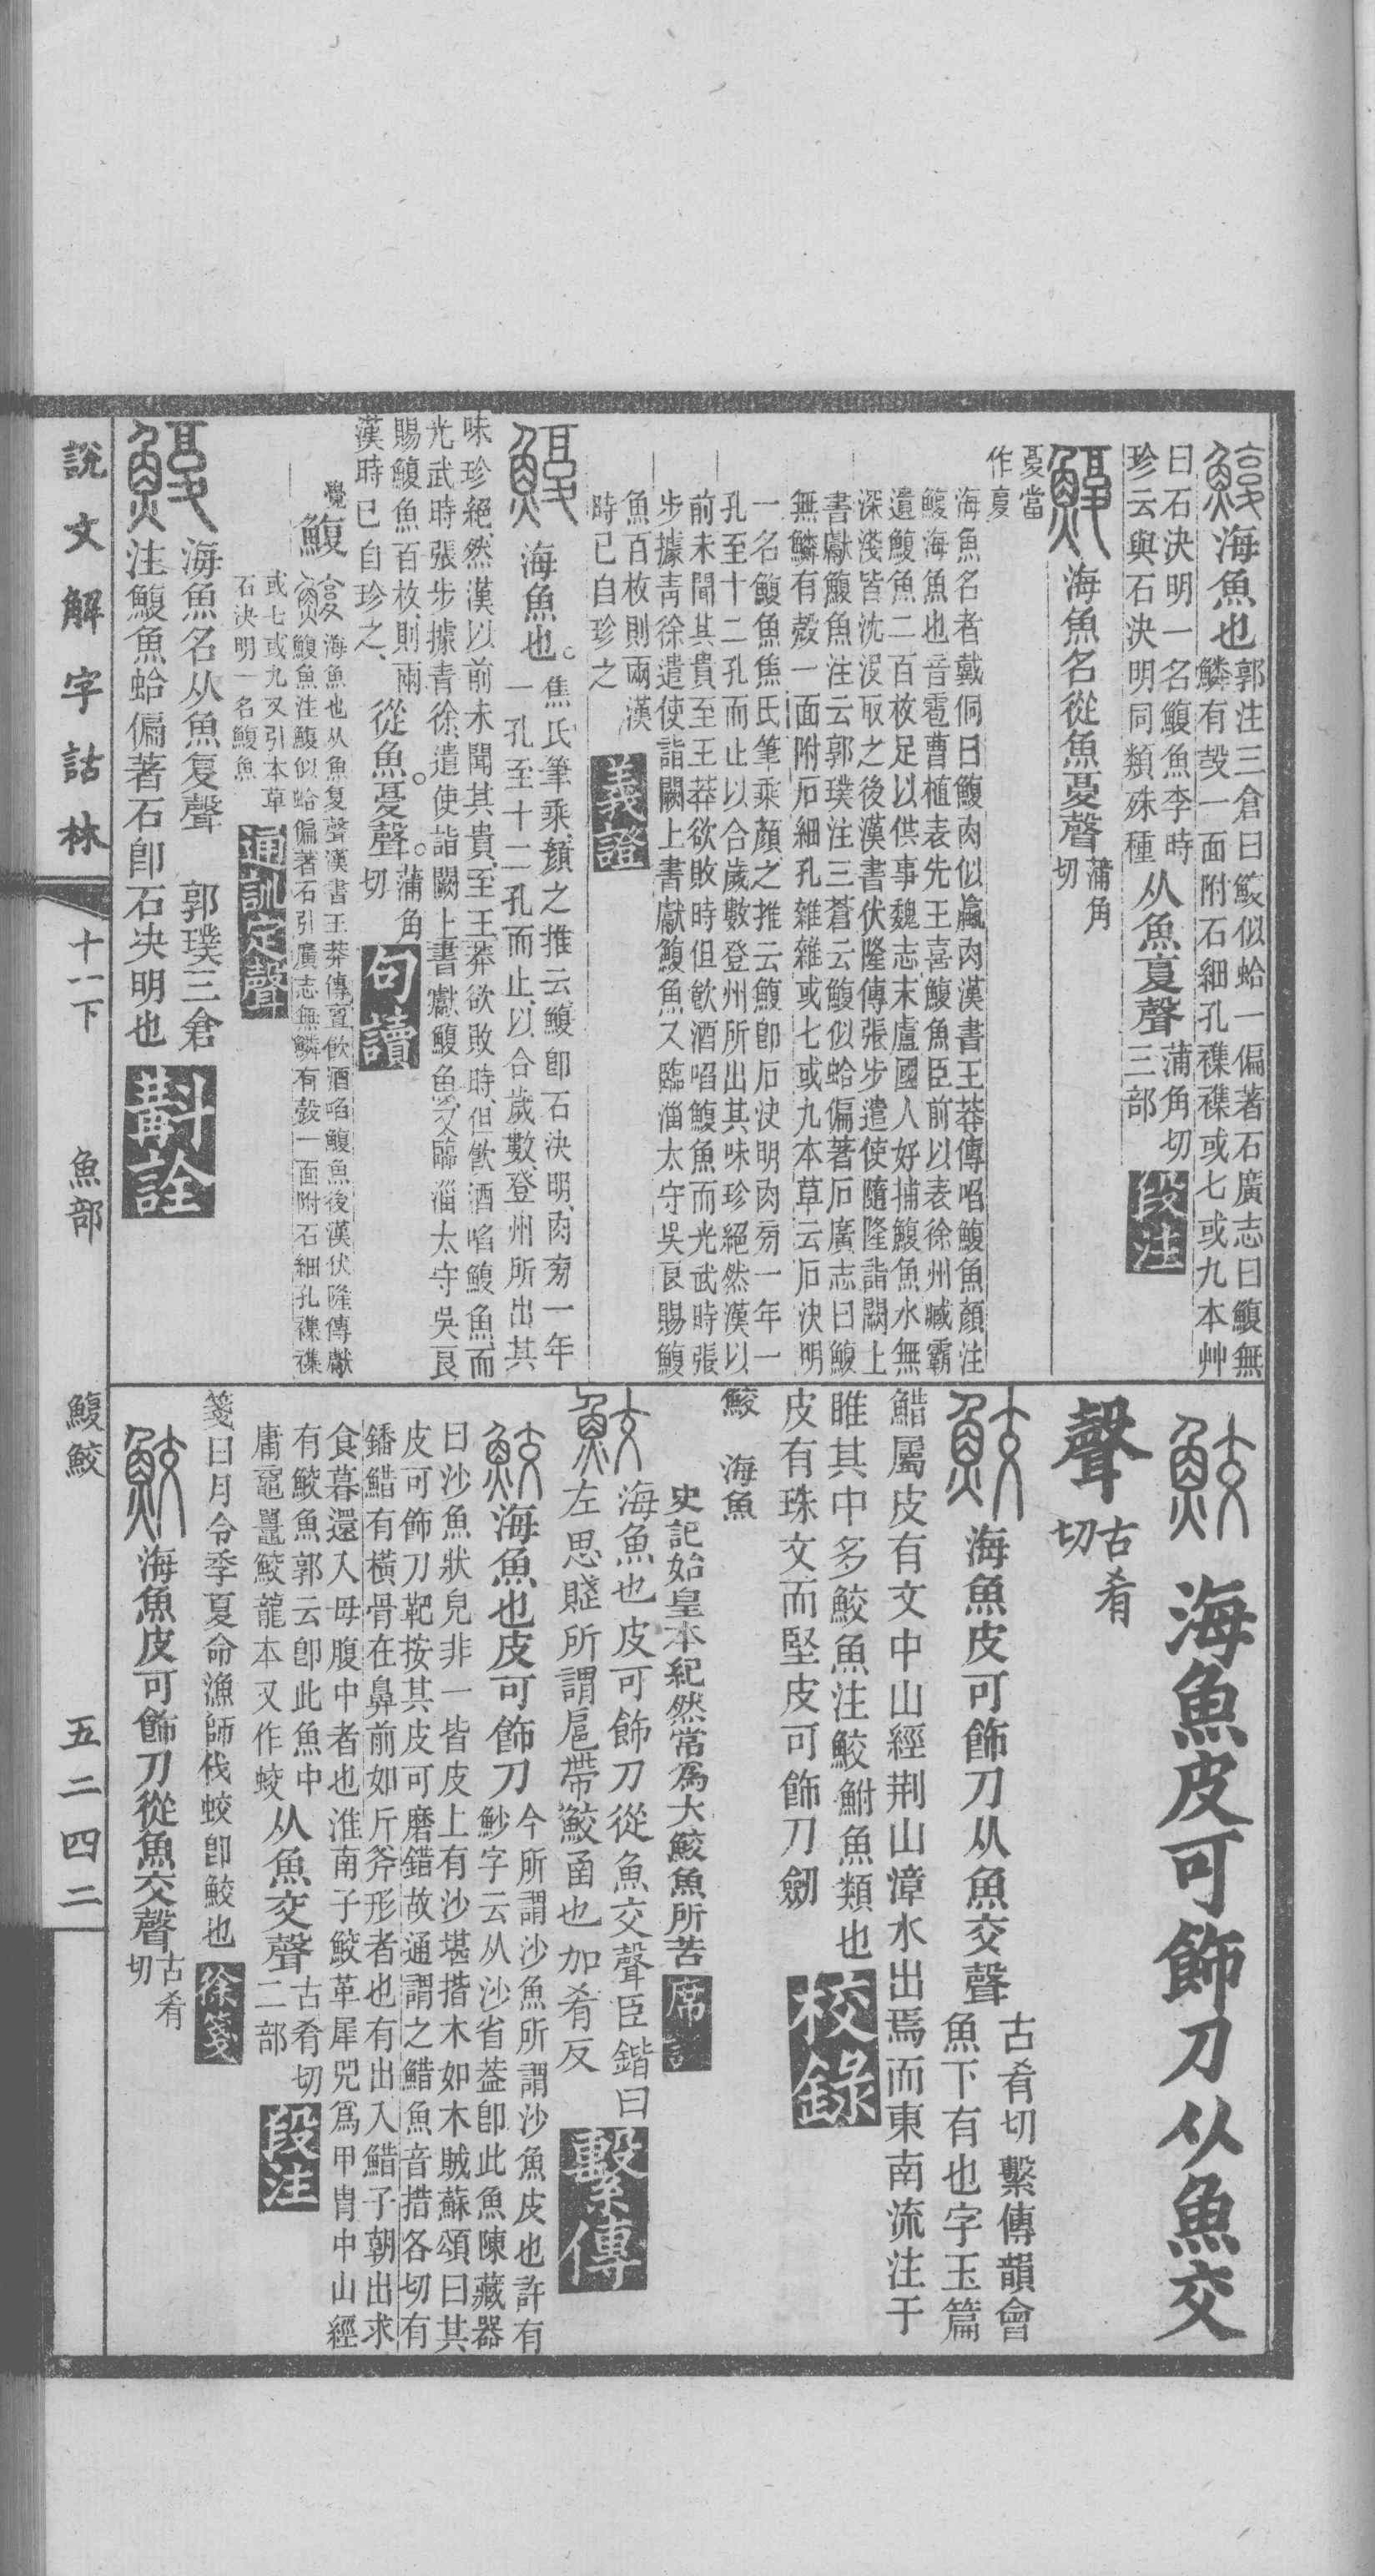 鰒海魚也郭注三倉曰鰒似蛤一偏著石廣志曰鰒無
鱗有殼一面附石細孔襍襍或七或九本艸
曰石決明一名鰒魚李時
珍云與石決明同類殊種
从魚复聲蒲角切
三部
段注
鰒海魚名從魚㚆聲蒲角
切
㚆當
作复
海魚名者戴侗曰鰒肉似蠃肉漢書王莽傳啗鰒魚顏注
鰒海魚也音雹曹植表先王喜鰒魚臣前以表徐州臧霸
遺鰒魚二百枚足以供事魏志末盧國人好捕鰒魚水無
深淺皆沈沒取之後漢書伏隆傳張步遣使隨隆詣闕上
書獻鰒魚注云郭璞注三蒼云鰒似蛤偏著石廣志曰鰒
無鱗有殼一面附石細孔雜雜或七或九本草云石決明
一名鰒魚焦氏筆乘顏之推云鰒卽石決明肉旁一年一
孔至十二孔而止以合歲數登州所出其味珍絕然漢以
前未聞其貴至王莽欲敗時但飮酒啗鰒魚而光武時張
步據青徐遣使詣闕上書獻鰒魚又臨淄太守吳良賜鰒
魚百枚則兩漢
時已自珍之
義證
鰒海魚也。焦氏筆乘顏之推云鰒卽石決明、肉旁一年
一孔至十二孔而止、以合歲數、登州所出其
味珍絕、然漢以前未聞其貴、至王莽欲敗時、但飮酒啗鰒魚、而
光武時張步據青徐、遣使詣闕上書獻鰒魚、又臨淄太守吳良
賜鰒魚百枚、則兩
漢時已自珍之、
從魚。㚆聲。蒲角
切
句讀
覺
鰒
海魚也从魚复聲漢書王莽傳亶飮酒啗鰒魚後漢伏隆傳獻
鰒魚注鰒似蛤偏著石引廣志無鱗有殼一面附石細孔襍襍
或七或九又引本草
石決明一名鰒魚
通訓定聲
鰒海魚名从魚复聲 郭璞三倉
注鰒魚蛤偏著石卽石決明也
斠詮
鮫海魚皮可飾刀从魚交
聲古肴
切
鮫海魚皮可飾刀从魚交聲古肴切繫傳韻會
魚下有也字玉篇
䱜屬皮有文中山經荆山漳水出焉而東南流注于
睢其中多鮫魚注鮫鮒魚類也
皮有珠文而堅皮可飾刀劒
校錄
鮫 海魚
史記始皇本紀然常爲大鮫魚所苦
席記
鮫海魚也皮可飾刀從魚交聲臣鍇曰
左思賦所謂扈帶鮫函也加肴反
繫傳
鮫海魚也皮可飾刀今所謂沙魚所謂沙魚皮也許有
魦字云从沙省葢卽此魚陳藏器
曰沙魚狀皃非一皆皮上有沙堪揩木如木賊蘇頌曰其
皮可飾刀靶按其皮可磨錯故通謂之䱜魚音措各切有
鐇䱜有橫骨在鼻前如斤斧形者也有出入䱜子朝出求
食暮還入母腹中者也淮南子鮫革犀兕爲甲胄中山經
有鮫魚郭云卽此魚中
庸黿鼉鮫龍本又作蛟
从魚交聲古肴切
二部
段注
箋曰月令季夏命漁師伐蛟卽鮫也
徐箋
鮫海魚皮可飾刀從魚交聲古肴
切
說文解字詁林
十一下
魚部
鰒鮫
五二四二